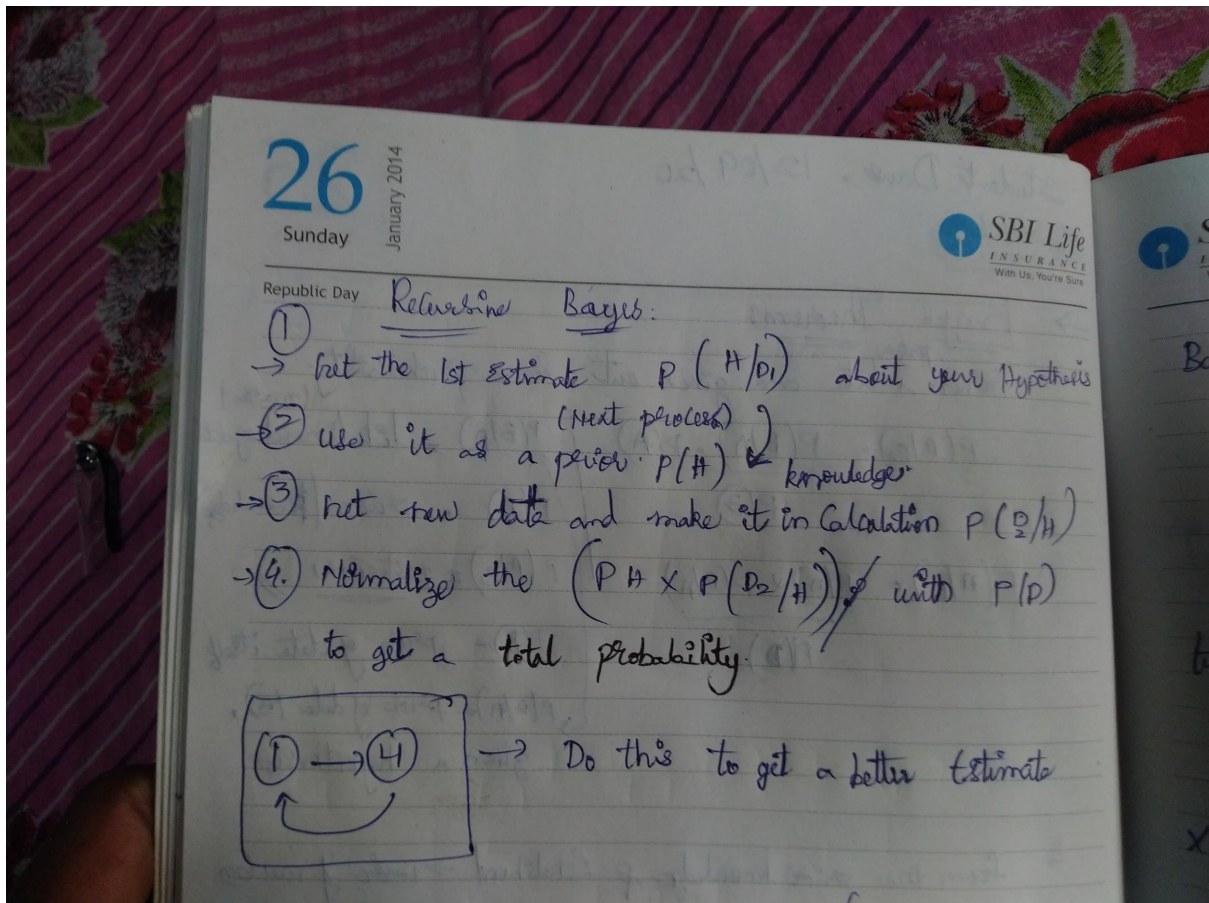 26
Sunday
January 2014
SBI Life
INSURANCE
With Us, You're Sure
Republic Day
Recursive Bayes:
①
→ Get the 1st Estimate P (H/D₁) about your Hypothesis
(Next process)
→ ② use it as a prior. P(H) knowledge.
→ ③ Get new data and make it in Calculation P(D₂/H)
→ ④. Normalize the (P H X P(D₂/H)) with P(D)
to get a total probability.
① → ④ → Do this to get a better Estimate